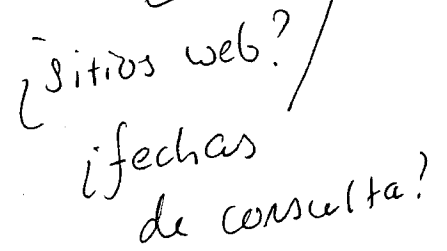 ¿sitios web?/
¿fechas
de consulta?